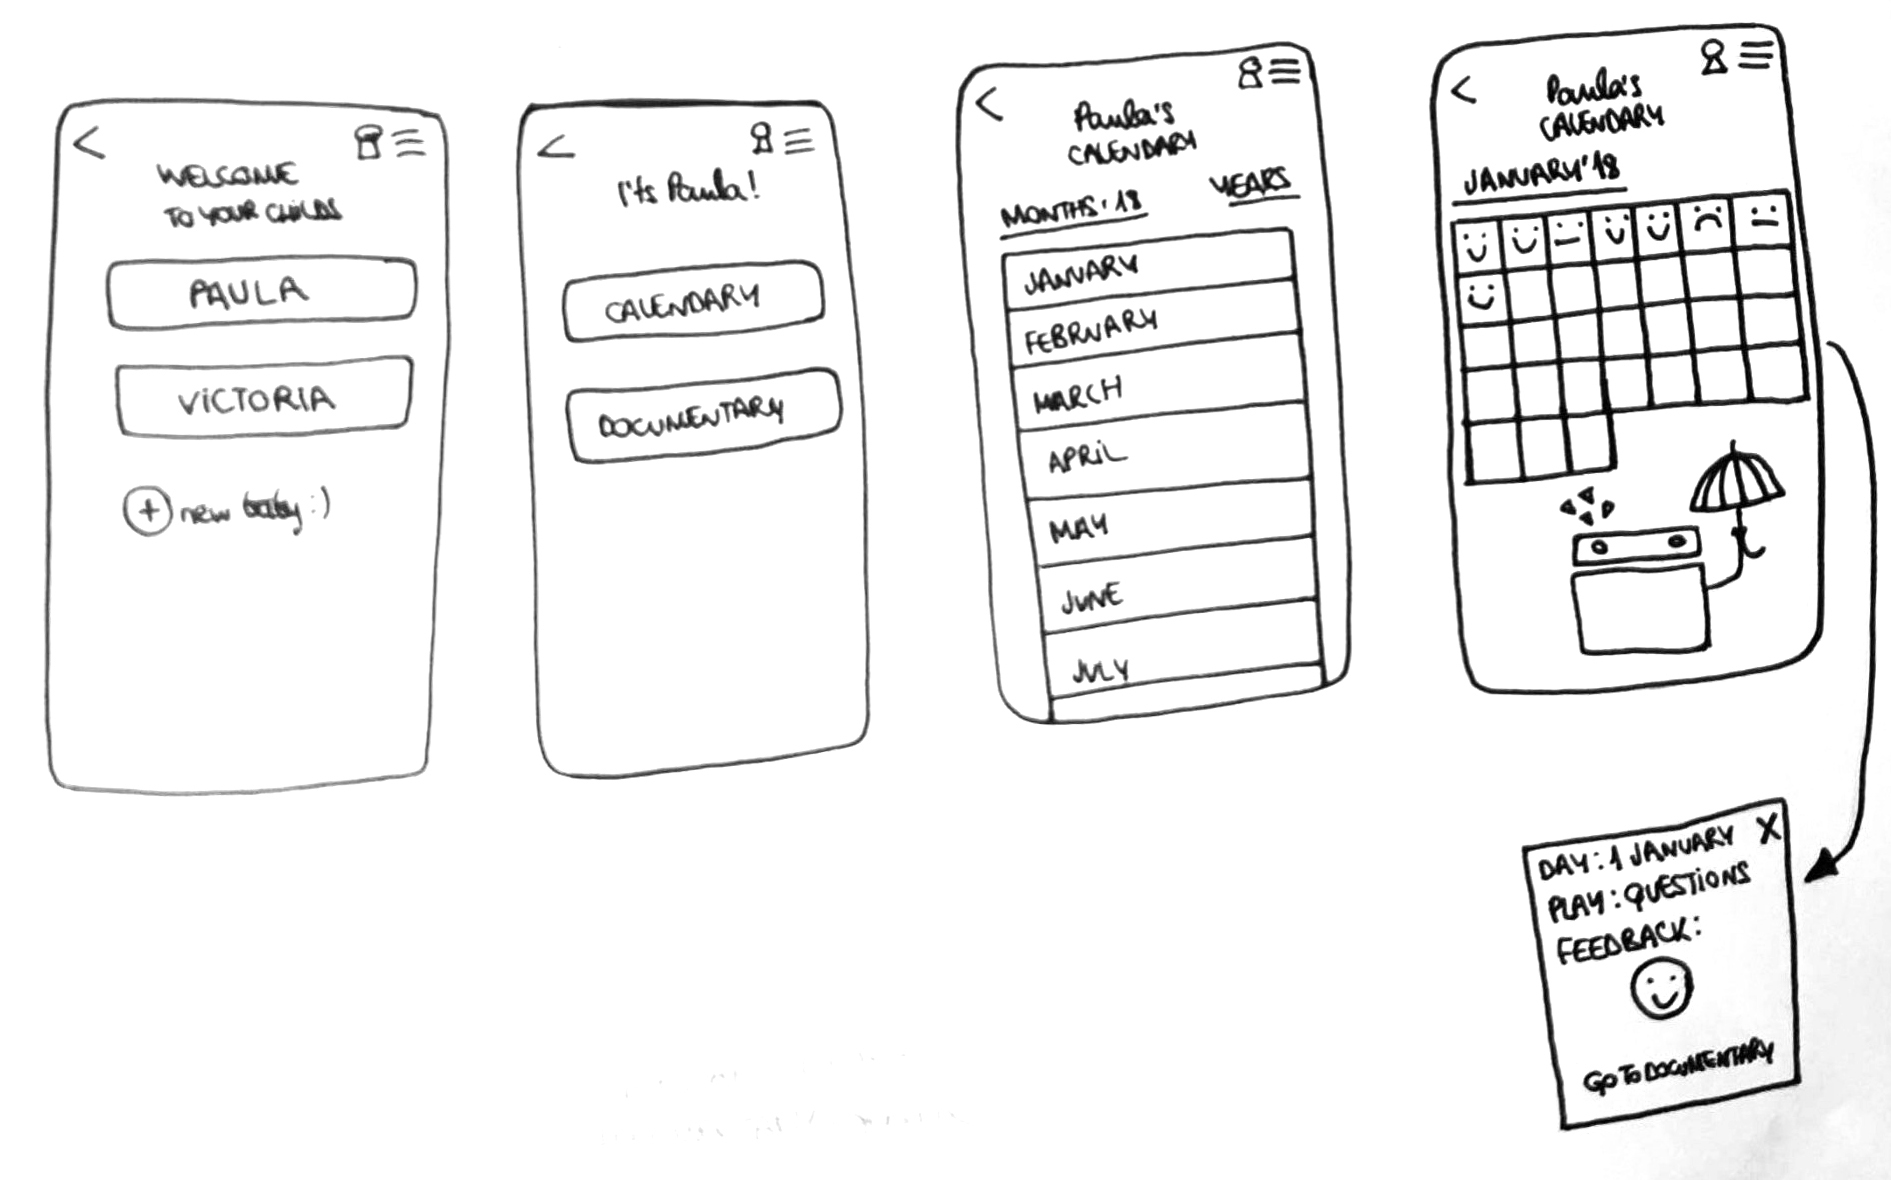 WELCOME
TO YOUR CHILDS
PAULA
VICTORIA
+ new baby :)
It's Paula!
CALENDARY
DOCUMENTARY
Paula's
CALENDARY
MONTHS '18 YEARS
JANUARY
FEBRUARY
MARCH
APRIL
MAY
JUNE
JULY
Paula's
CALENDARY
JANUARY '18
DAY: 1 JANUARY X
PLAY: QUESTIONS
FEEDBACK:
GO TO DOCUMENTARY